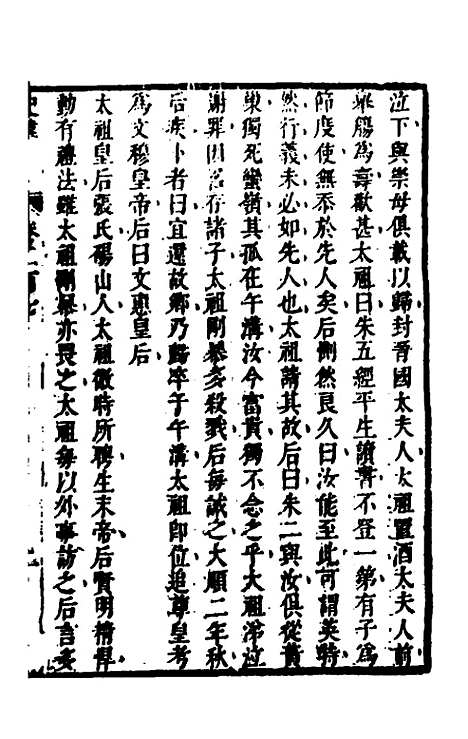 泣下與崇母俱載以歸封晉國太夫人太祖置酒太夫人前
舉觴爲壽歡甚太祖曰朱五經平生讀書不登一第有子爲
節度使無忝於先人矣后惻然良久曰汝能至此可謂英特
然行義未必如先人也太祖請其故后曰朱二與汝俱從黃
巢獨死蠻嶺其孤在午溝汝今富貴獨不念之乎太祖涕泣
謝罪因召存諸子太祖剛暴多殺戮后每誡之大順二年秋
后疾卜者曰宜還故鄉乃歸卒于午溝太祖卽位追尊皇考
爲文穆皇帝后曰文惠皇后
太祖皇后張氏碭山人太祖微時所聘生末帝后賢明精悍
動有禮法雖太祖剛暴亦畏之太祖每以外事訪之后言多